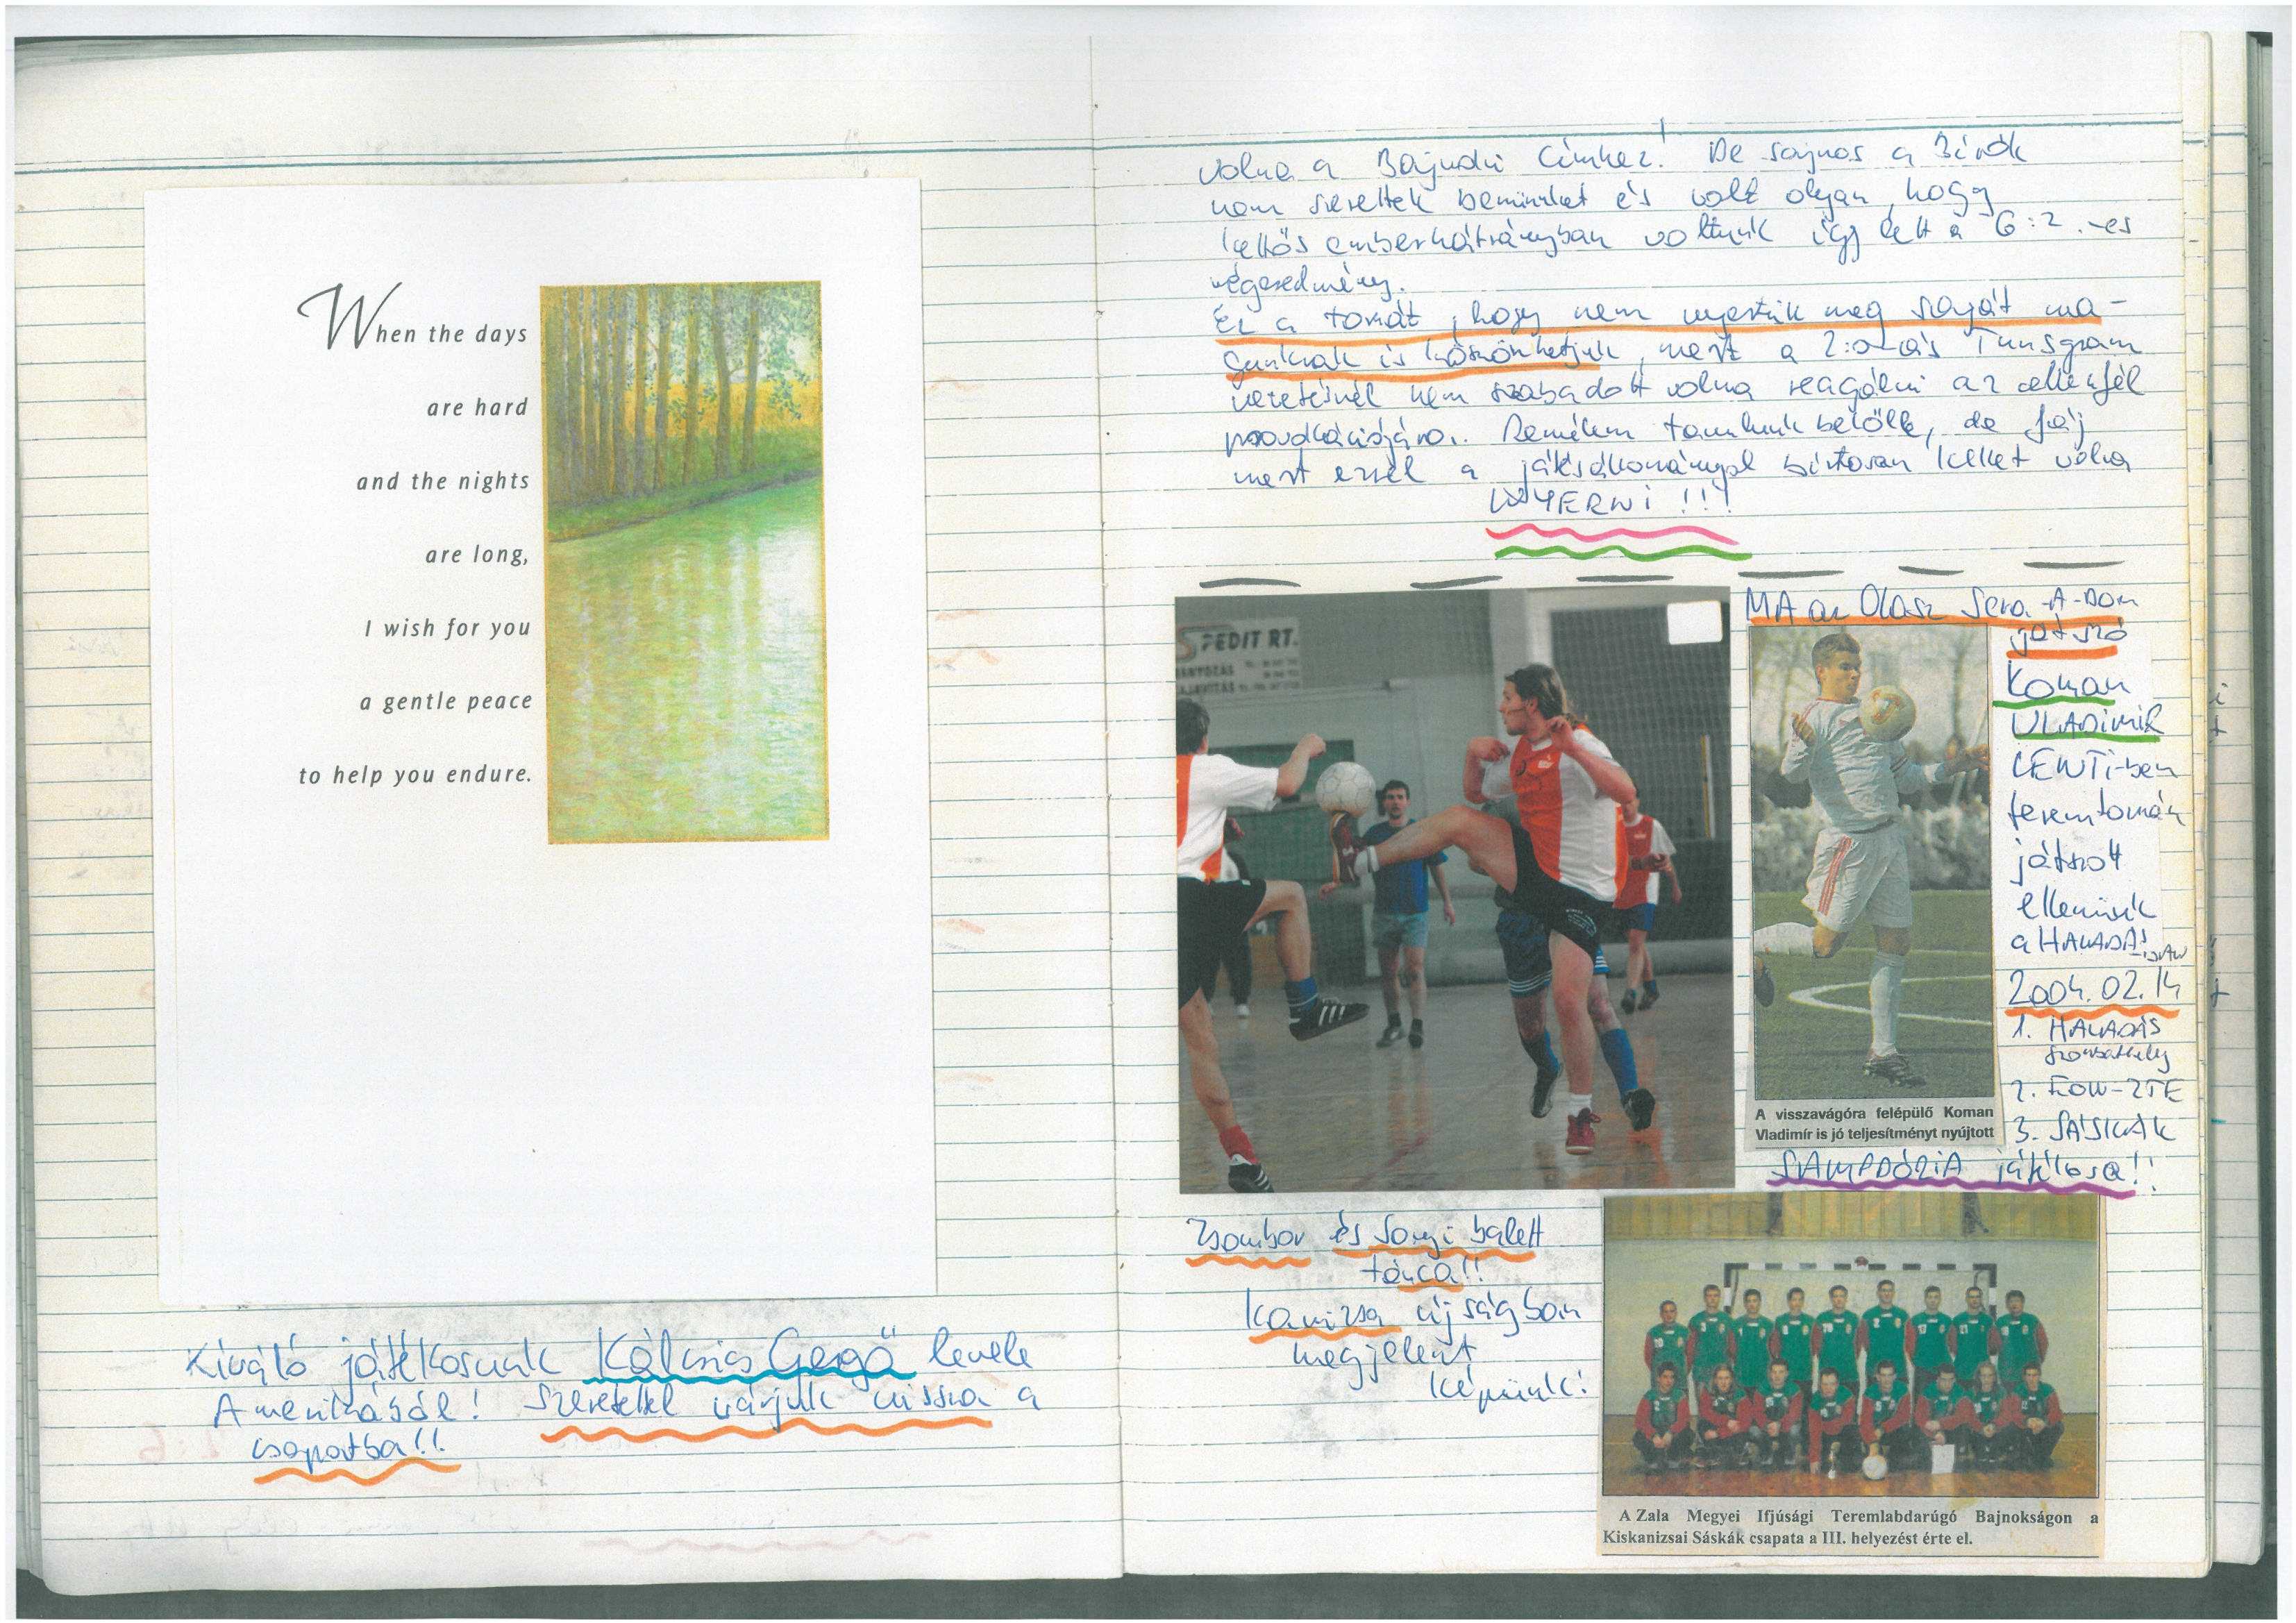 When the days
are hard
and the nights
are long,
I wish for you
a gentle peace
to help you endure.
Kiváló játékosunk Kálcsics Gergő levele
Amerikából! Szeretettel várjuk vissza a
csapatba!!
volna a Bajnoki címhez! De sajnos a Bírók
nem szerettek bennünket és volt olyan, hogy
kettős emberhátrányban voltunk így lett a 6:2.-es
végeredmény.
Ez a tornát, hogy nem nyertük meg saját ma-
gunknak is köszönhetjük, mert a 2:0-ás Tungsram
vezetésnél nem szabadott volna reagálni az ellenfél
provokációjára. Remélem tanulunk belőle, de fáj
mert ezzel a játékosállománnyal biztosan kellet volna
NYERNI!!!
SPEDIT RT.
MA az Olasz Seria-A-ban
játszó
Koman
VLADIMIR
LENTI-ben
teremtornán
játszott
ellenünk
a HALADÁS-ban
2004.02.14
1. HALADÁS
Szombathely
2. FLOW-ZTE
3. SÁSKÁK
A visszavágóra felépülő Koman
Vladimír is jó teljesítményt nyújtott
SAMPDÓRIA játékosa!!
Zsombor és Sonyi balett
tánca!!
Kanizsa újságban
megjelent
képünk!
A Zala Megyei Ifjúsági Teremlabdarúgó Bajnokságon a
Kiskanizsai Sáskák csapata a III. helyezést érte el.